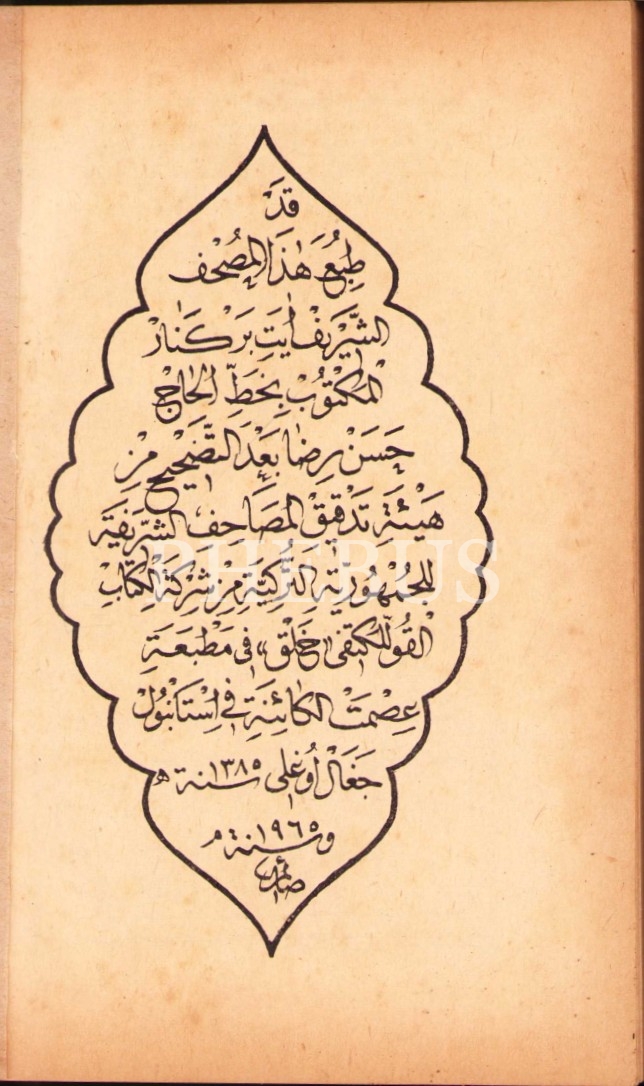 قَدْ
طُبِعَ هٰذَا الْمُصْحَفُ
الشَّرِيفُ اٰيَتْ بَرْكَنَارْ
الْمَكْتُوبُ بِخَطِّ الْحَاجْ
حَسَنْ رِضَا بَعْدَ التَّصْحِيحِ مِنْ
هَيْئَةِ تَدْقِيقْ الْمَصَاحِفِ الشَّرِيفَةِ
لِلْجُمْهُورِيَّةِ التُّرْكِيَّةِ مِنْ شِرْكَةِ الْكِتَابِ
فِي مَطْبَعَةِ
عِصْمَتْ الْكَائِنَةِ فِي اِسْتَانْبُولْ
جَغَالْ أُوغْلِى سنة ١٣٨٥ ه
وسنة ١٩٦٥ م
PHEBUS